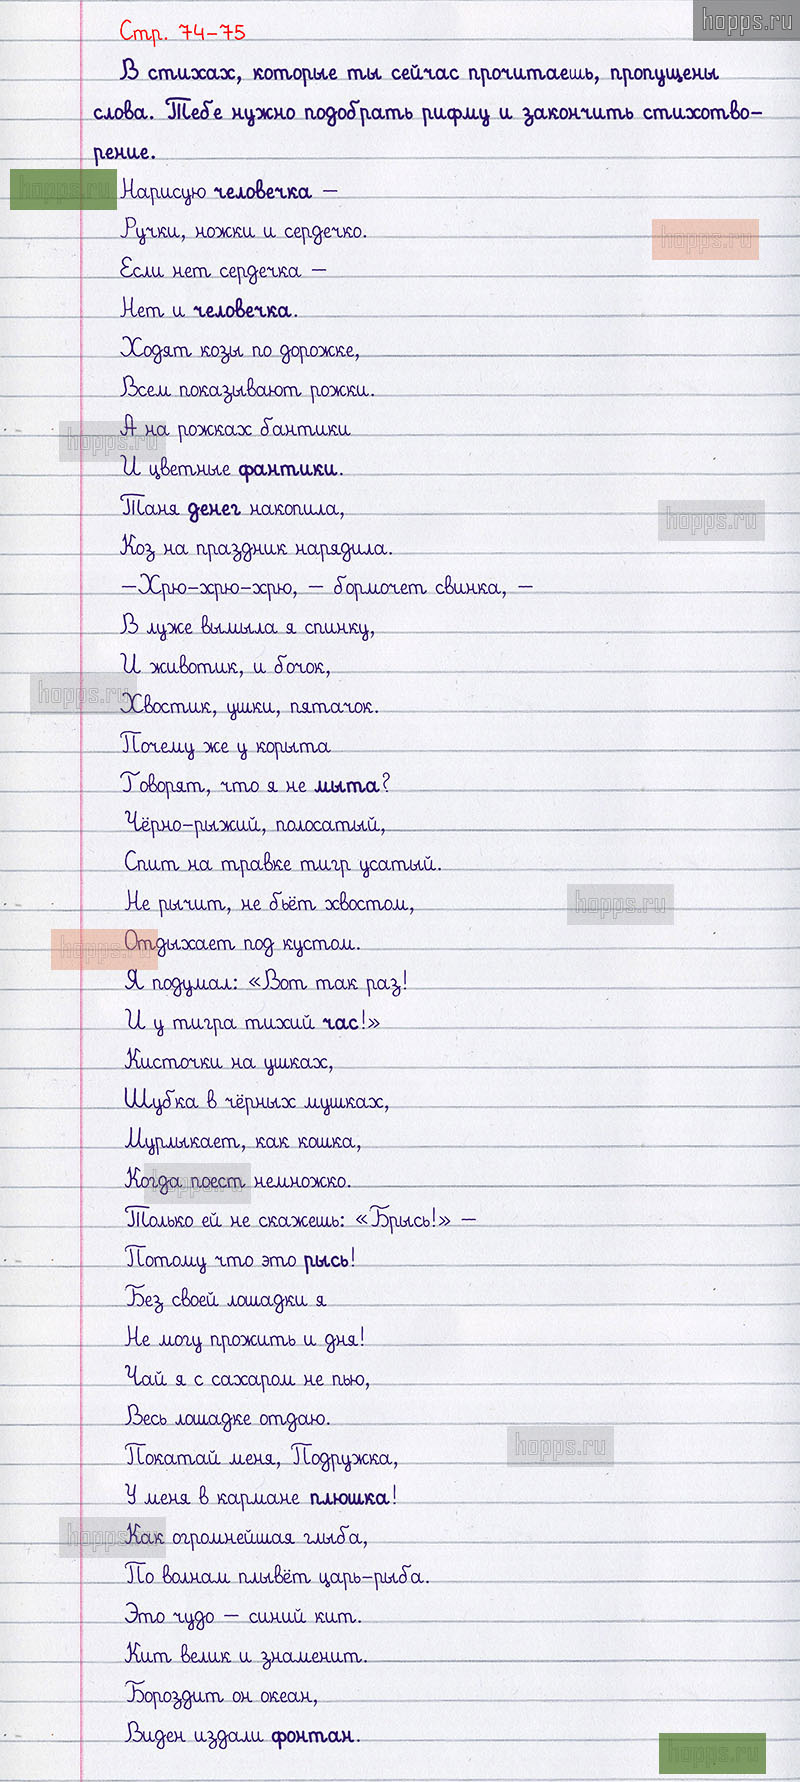 hopps.ru
Стр. 74-75
В стихах, которые ты сейчас прочитаешь, пропущены
слова. Тебе нужно подобрать рифму и закончить стихотво-
рение.
hopps.ru
Нарисую человечка –
Ручки, ножки и сердечко.
hopps.ru
Если нет сердечка –
Нет и человечка.
Ходят козы по дорожке,
Всем показывают рожки.
А на рожках бантики
hopps.ru
И цветные фантики.
Таня денег накопила,
hopps.ru
Коз на праздник нарядила.
–Хрю-хрю-хрю, – бормочет свинка, –
В луже вымыла я спинку,
И животик, и бочок,
hopps.ru
Хвостик, ушки, пятачок.
Почему же у корыта
Говорят, что я не мыта?
Чёрно-рыжий, полосатый,
Спит на травке тигр усатый.
Не рычит, не бьёт хвостом,
hopps.ru
Отдыхает под кустом.
hopps.ru
Я подумал: «Вот так раз!
И у тигра тихий час!»
Кисточки на ушках,
Шубка в чёрных мушках,
Мурлыкает, как кошка,
Когда поест немножко.
hopps.ru
Только ей не скажешь: «Брысь!» –
Потому что это рысь!
Без своей лошадки я
Не могу прожить и дня!
Чай я с сахаром не пью,
Весь лошадке отдаю.
hopps.ru
Покатай меня, Подружка,
У меня в кармане плюшка!
Как огромнейшая глыба,
hopps.ru
По волнам плывёт царь-рыба.
Это чудо – синий кит.
Кит велик и знаменит.
Бороздит он океан,
Виден издали фонтан.
hopps.ru